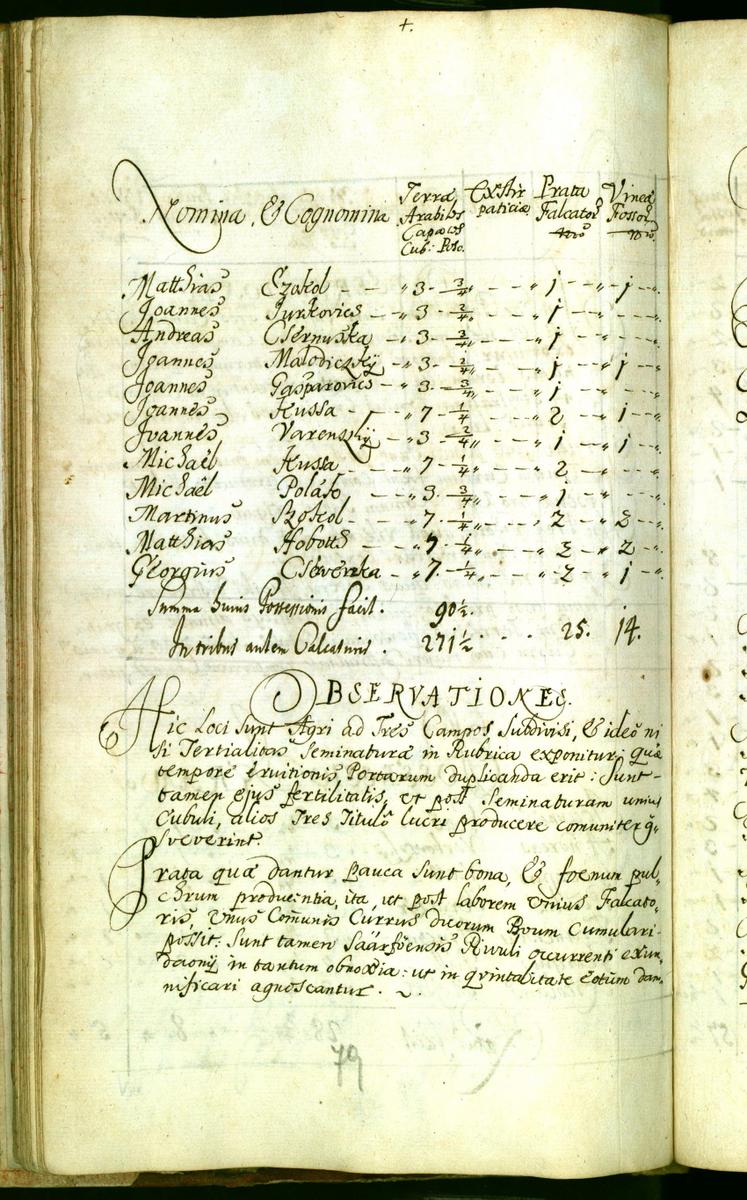 4.
Nomina, & Cognomina Terræ Arabiles Capaces Cub: Poso. Exstirpaticiæ Prata Falcatorũ Nro Vineæ Fossorũ Nro
Matthias Szokol — — " 3 - 3/4 " — — " 1 — " 1 — "
Joannes Jurkovics — " 3 - 3/4 " — — " 1 — — "
Andreas Csernuska — " 3 - 3/4 " — — " 1 — — "
Joannes Malodiczkÿ — " 3 - 3/4 " — — " 1 — " 1 — "
Joannes Gasparovics — " 3 - 3/4 " — — " 1 — — "
Joannes Kussa — — " 7 - 1/4 " — — " 2 — " 1 — "
Joannes Varenszkÿ — " 3 - 3/4 " — — " 1 — " 1 — "
Michaël Kussa — — " 7 - 1/4 " — — " 2 — — "
Michaël Poláko — — " 3 - 3/4 " — — " 1 — — "
Martinus Szokol — — " 7 - 1/4 " — — " 2 — " 2 — "
Matthias Hobotth — — " 7 - 1/4 " — — " 2 — " 2 — "
Georgius Cseverzka — " 7 - 1/4 " — — " 2 — " 1 — "
Summa huius Possessionis facit. 90 1/2.
In tribus autem Calcaturis. 271 1/2 . . . 25. 14.
OBSERVATIONES.
Hic Loci sunt Agri ad Tres Campos subdivisi, & ideo ni
si Tertialitas seminaturæ in Rubrica exponitur: quæ
tempore eruitionis Portarum duplicanda erit: Sunt
tamen ejus fertilitatis, ut post seminaturam unius
Cubuli, alios Tres Titulo lucri producere comuniter q-
sveverint.
Prata quæ dantur pauca sunt bona, & foenum pul-
chrum producentia, ita, ut post laborem unius Falcato-
ris, Unus Com̃unis Currus duorum Boum cumulari
possit: Sunt tamen Säärfőensis Rivuli occurrenti exun-
dacionÿ in tantum obnoxia: ut in qvintalitate eotum dam-
nificari agnoscantur.
79